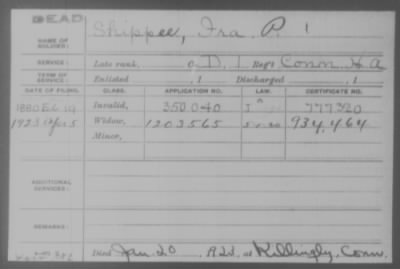 DEAD
NAME OF SOLDIER: Shippee, Ira P.
SERVICE: Late rank, Co D, 1 Reg't Conn H A
TERM OF SERVICE: Enlisted , 1 Discharged , 1
DATE OF FILING. CLASS. APPLICATION NO. LAW. CERTIFICATE NO.
Invalid, 350040 777320
1923 Apr 5 Widow, 1203565 934,464
Minor,
ADDITIONAL SERVICES:
REMARKS:
Died Jan. 20 , at Killingly, Conn.